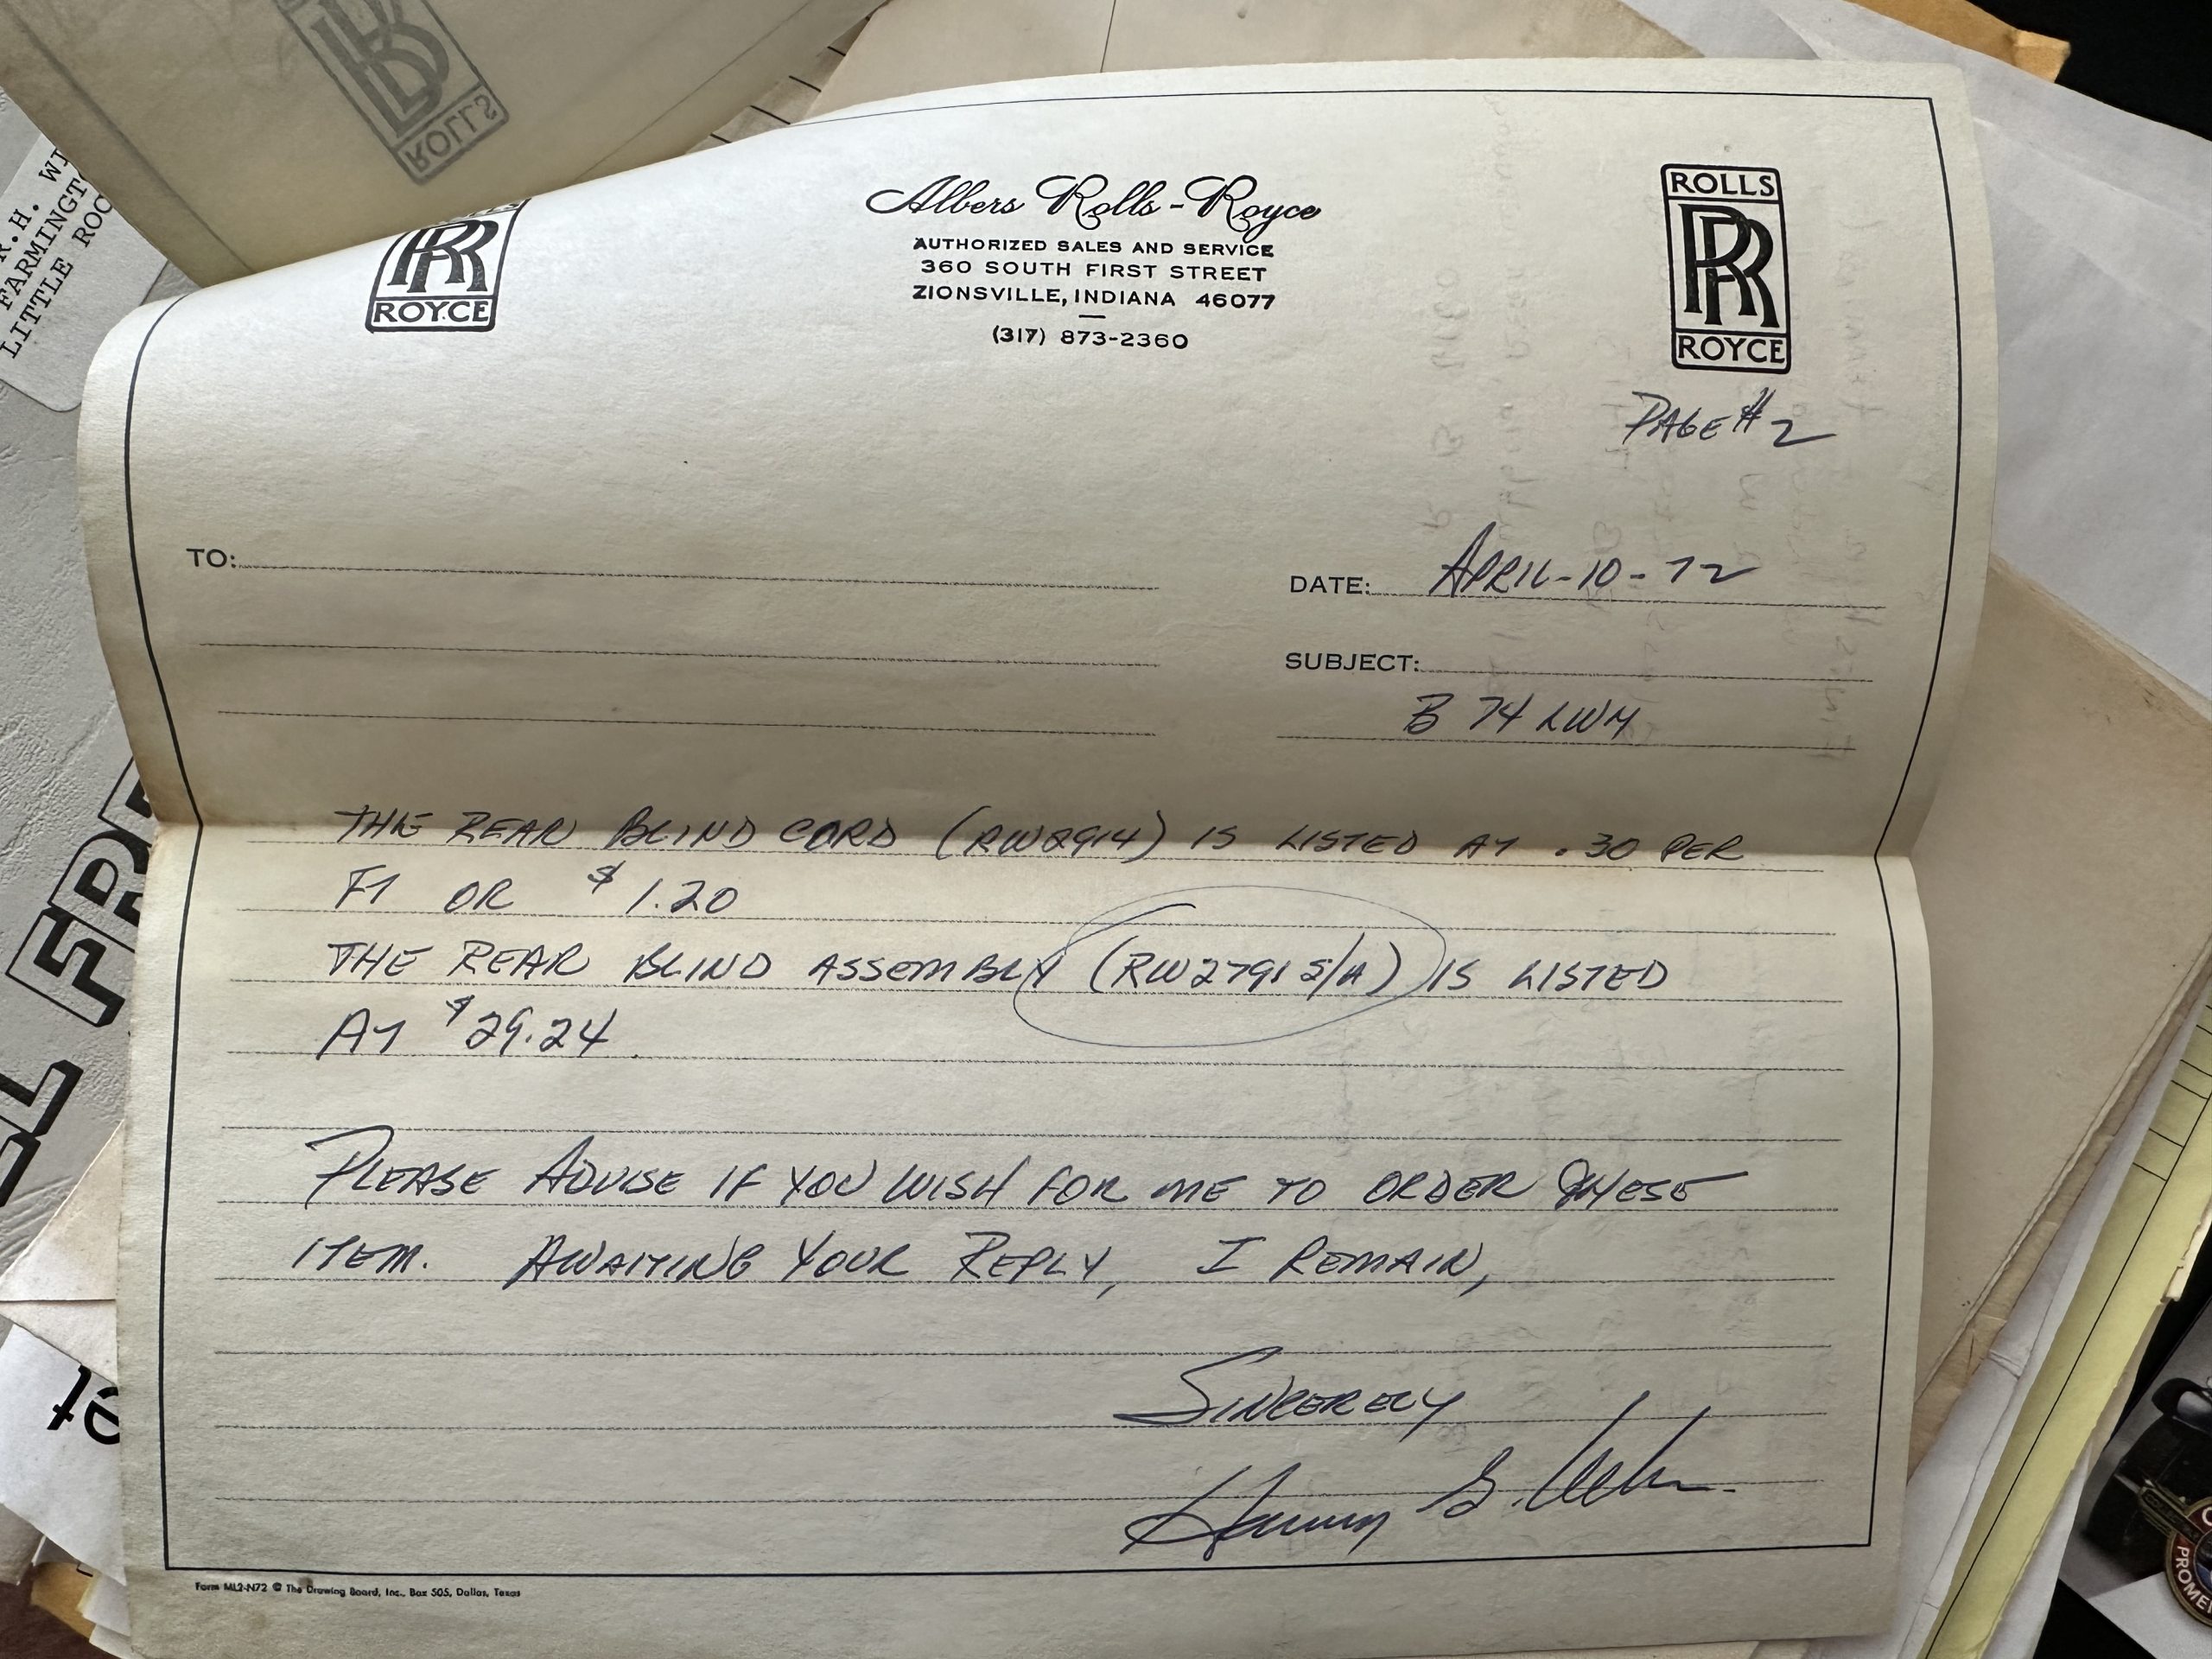 ROLLS
R.H.
FARMINGT
LITTLE ROC
ROYCE
Albers Rolls-Royce
AUTHORIZED SALES AND SERVICE
360 SOUTH FIRST STREET
ZIONSVILLE, INDIANA 46077
(317) 873-2360
ROLLS
RR
ROYCE
PAGE #2
TO:
DATE: APRIL-10-72
SUBJECT:
B 74 LWM
THE REAR BLIND CORD (RW2914) IS LISTED AT .30 PER
FT OR $1.20
THE REAR BLIND ASSEMBLY (RW2791 S/A) IS LISTED
AT $29.24
PLEASE ADVISE IF YOU WISH FOR ME TO ORDER THESE
ITEM. AWAITING YOUR REPLY, I REMAIN,
SINCERELY
Form ML2-N72 © The Drawing Board, Inc., Box 505, Dallas, Texas